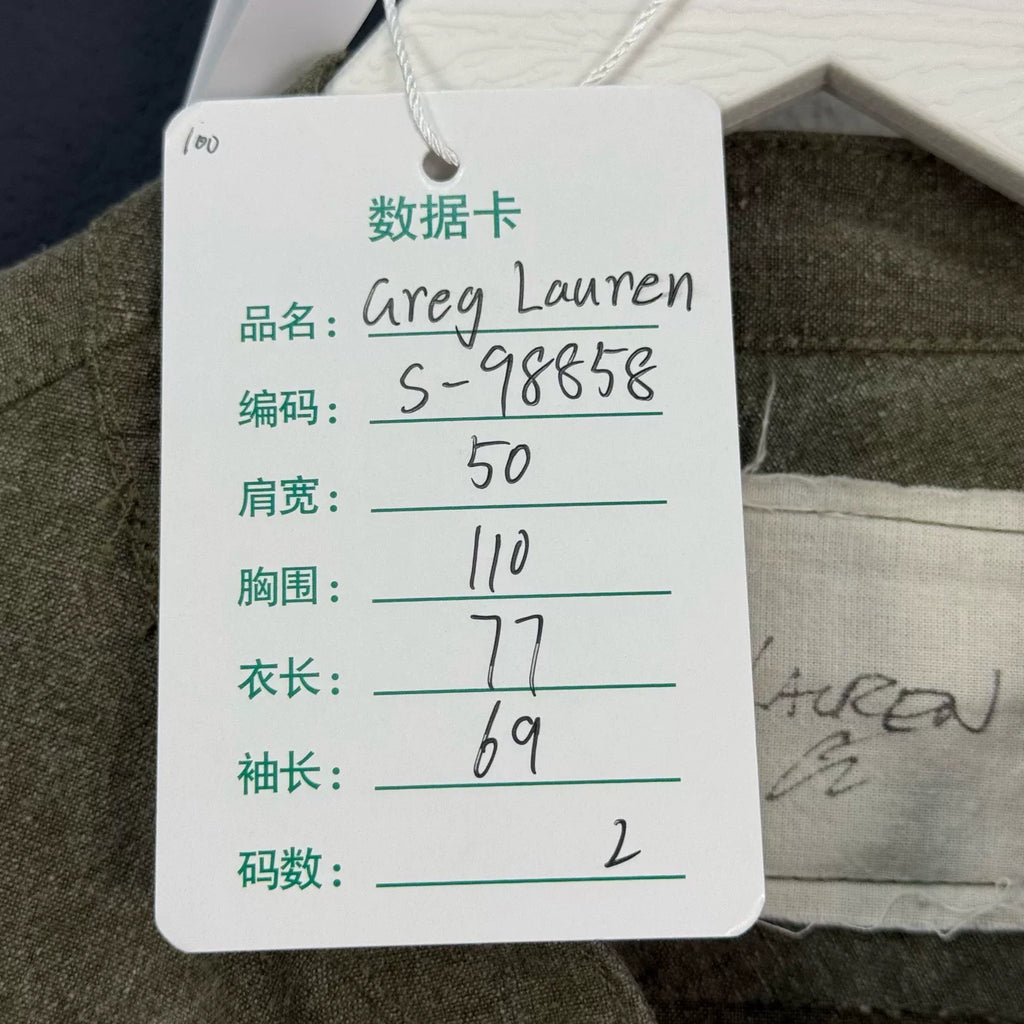 100
数据卡
品名: Greg Lauren
编码: S-98858
肩宽: 50
胸围: 110
衣长: 77
袖长: 69
码数: 2
LAUREN